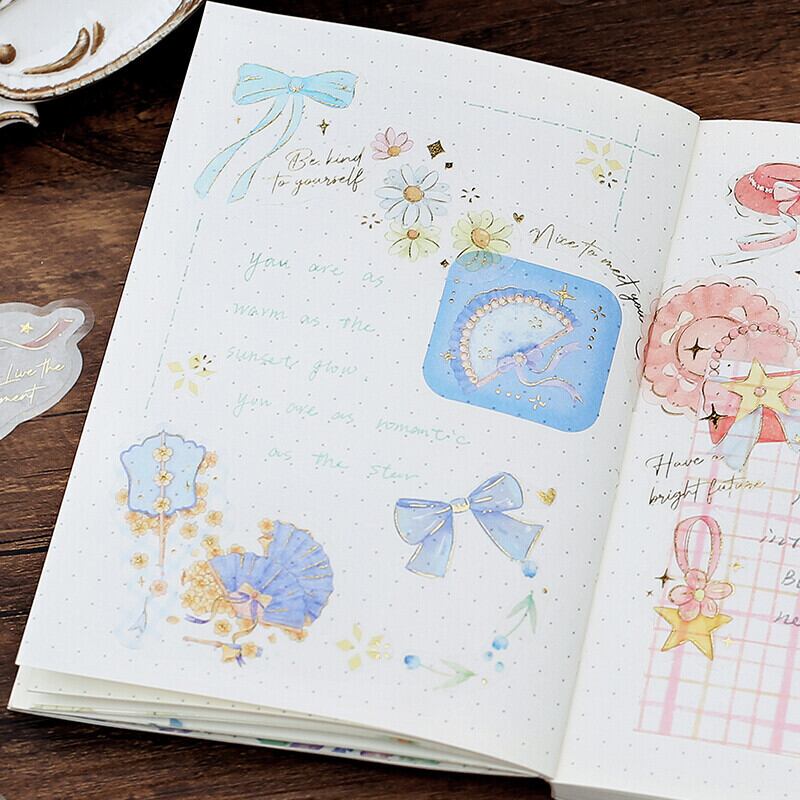 Be kind
to yourself
Nice to meet you
You are as
warm as the
sunset glow,
you are as romantic
as the star
Live the
Have a
bright future